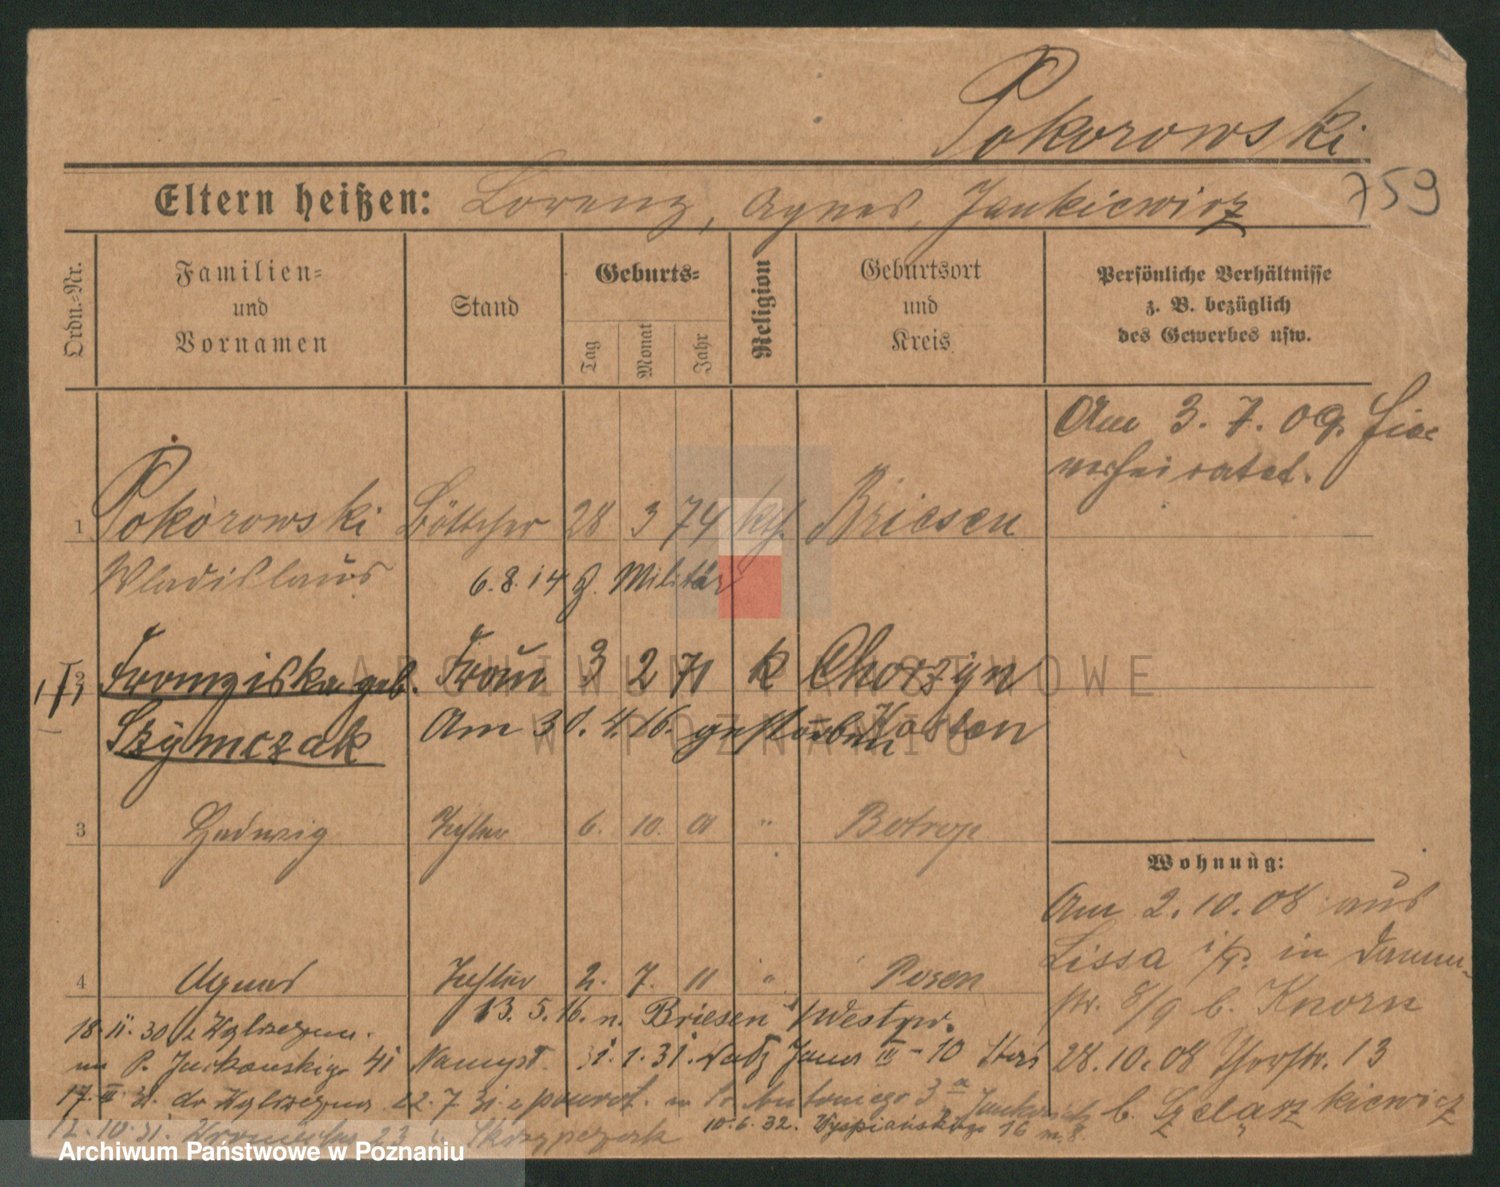 Pokorowski
Eltern heißen: Lorenz, Agnes, Jankiewicz 759
Ordn.-Nr.
Familien-
und
Vornamen
Stand
Geburts-
Tag
Monat
Jahr
Religion
Geburtsort
und
Kreis
Persönliche Verhältnisse
z. B. bezüglich
des Gewerbes usw.
Am 3. 7. 09. hier
verheiratet.
1 Pokorowski Böttcher 28 3 74 kth. Briesen
Wladislaus 6.8.14 z. Militär
2 Franziska geb. Frau 3 2 71 k Chorzyn
Szymczak Am 30.4.16. gestorben Kosten
3 Hedwig Tochter 6. 10. 01 " Botrop
Wohnung:
Am 2.10.08 aus
Lissa i/P. in Damm-
str. 8/9 b. Knorn
28.10.08 Thorstr. 13
b. Szelążkiewicz
4 Agnes Tochter 2. 7. 11 " Posen
13.5.16. n. Briesen /Westpr.
18.11.30 41 Namyst. 31.1.31. 10
17. 31. do 22.7.31. z powrot. 3a
12.10.31. 23 Skrzypczak 10.6.32. Wyspiańskiego 16 m. 8.
ARCHIWUM PAŃSTWOWE
W POZNANIU
Archiwum Państwowe w Poznaniu